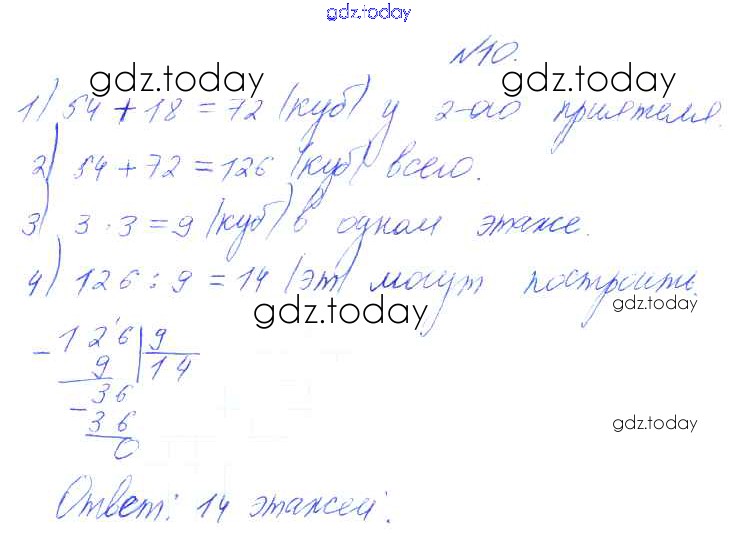 gdz.today
№10.
gdz.today gdz.today
1) 54 + 18 = 72 (куб) у 2-ого приятеля.
2) 54 + 72 = 126 (куб) всего.
3) 3 · 3 = 9 (куб) в одном этаже.
4) 126 : 9 = 14 (эт) могут построить.
gdz.today
gdz.today
- 126 | 9
9 | 14
- 36
36
0
gdz.today
Ответ: 14 этажей.